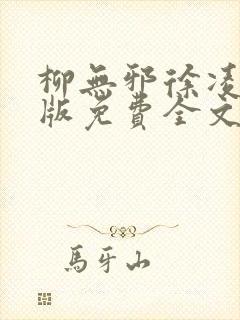 柳無邪徐凌
版免費全文
馬牙山